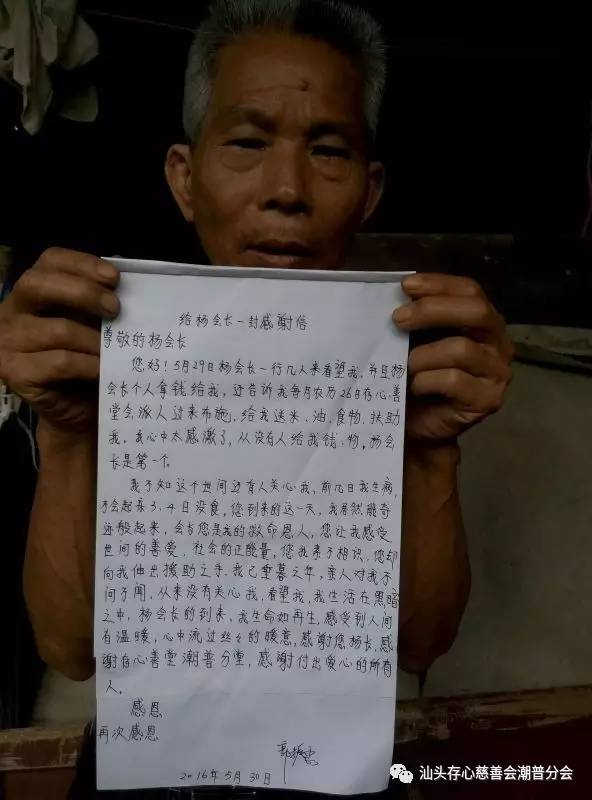 给杨会长一封感谢信
尊敬的杨会长
您好!5月29日杨会长一行几人来看望我,并且杨
会长个人拿钱给我,还告诉我每月农历26日存心善
堂会派人过来布施,给我送米、油、食物,扶助
我。我心中太感激了,从没有人给我钱、物,杨会
长是第一个。
我不知这个世间还有人关心我,前几日我生病,
不会起床3、4日没食,您到来的这一天,我居然能奇
迹般起来,会长您是我的救命恩人,您让我感受
世间的善爱,社会的正能量,您我素不相识,您却
向我伸出援助之手,我已垂暮之年,亲人对我不
问不闻,从来没有关心我,看望我,我生活在黑暗
之中,杨会长的到来,我生命如再生,感受到人间
有温暖,心中流过丝丝的暖意,感谢您杨长,感
谢存心善堂潮普分堂,感谢付出爱心的所有
人。
感恩
再次感恩
2016年5月30日
汕头存心慈善会潮普分会